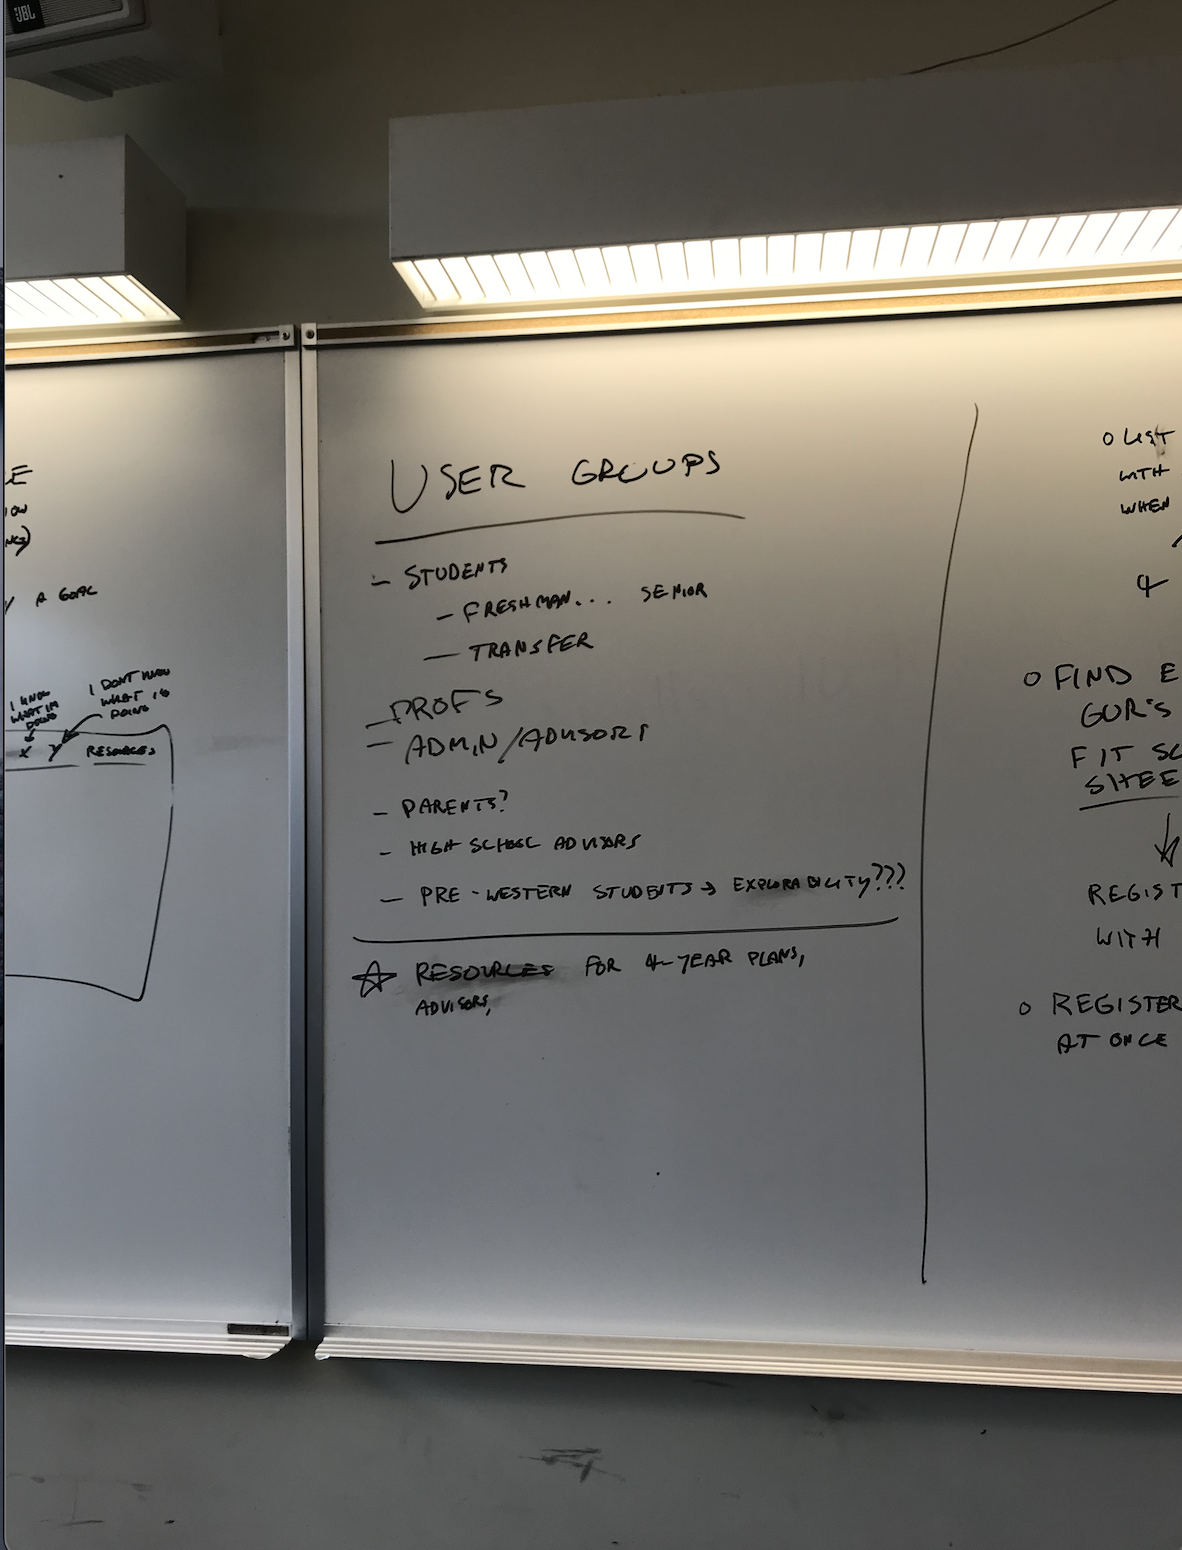 JBL
E
OW
A GOAL
I KNOW
WHAT I'M
DOING
I DON'T KNOW
WHAT IS
DOING
X Y RESOURCES
USER GROUPS
- STUDENTS
- FRESHMAN... SENIOR
- TRANSFER
- PROFS
- ADMIN/ADVISORS
- PARENTS?
- HIGH SCHOOL ADVISORS
- PRE-WESTERN STUDENTS → EXPLORABILITY???
☆ RESOURCES FOR 4-YEAR PLANS,
ADVISORS,
○ LIST
WITH
WHEN
4
○ FIND E
GUR'S
FIT SC
SHEE
↓
REGIST
WITH
○ REGISTER
AT ONCE